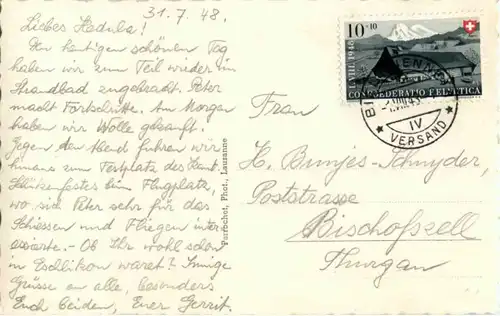 31.7.48.
Liebes Hedula!
Den heutigen schönen Tag
haben wir zum Teil wieder im
Strandbad zugebracht. Peter
macht Fortschritte. Am Morgen
haben wir Wolle gekauft.
Gegen den Abend fuhren wir
hinaus zum Festplatz des Kant.
Schützenfestes beim Flugplatz,
wo sich Peter sehr für das
Schiessen und Fliegen inter
essierte. - Ob Ihr wohl schon
in Eschlikon waret? Innige
Grüsse an alle, besonders
Euch beiden, Euer Gerrit.
Perrochet, Phot. Lausanne
10+10
1.VIII.1948
CONFOEDERATIO HELVETICA
IV
VERSAND
Frau
H. Bunjes-Schnyder,
Poststrasse
Bischofszell
Thurgau